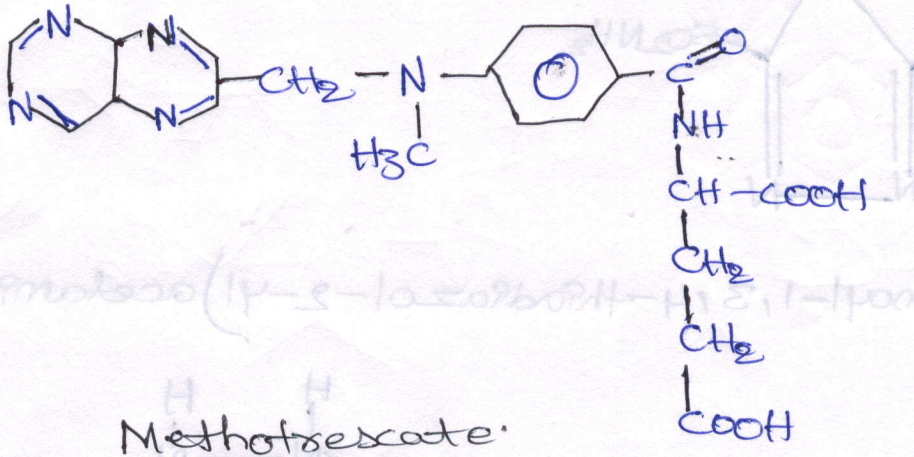 N N
N N
CH2 - N
H3C
C O
NH
CH - COOH
CH2
CH2
COOH
Methotrescate.